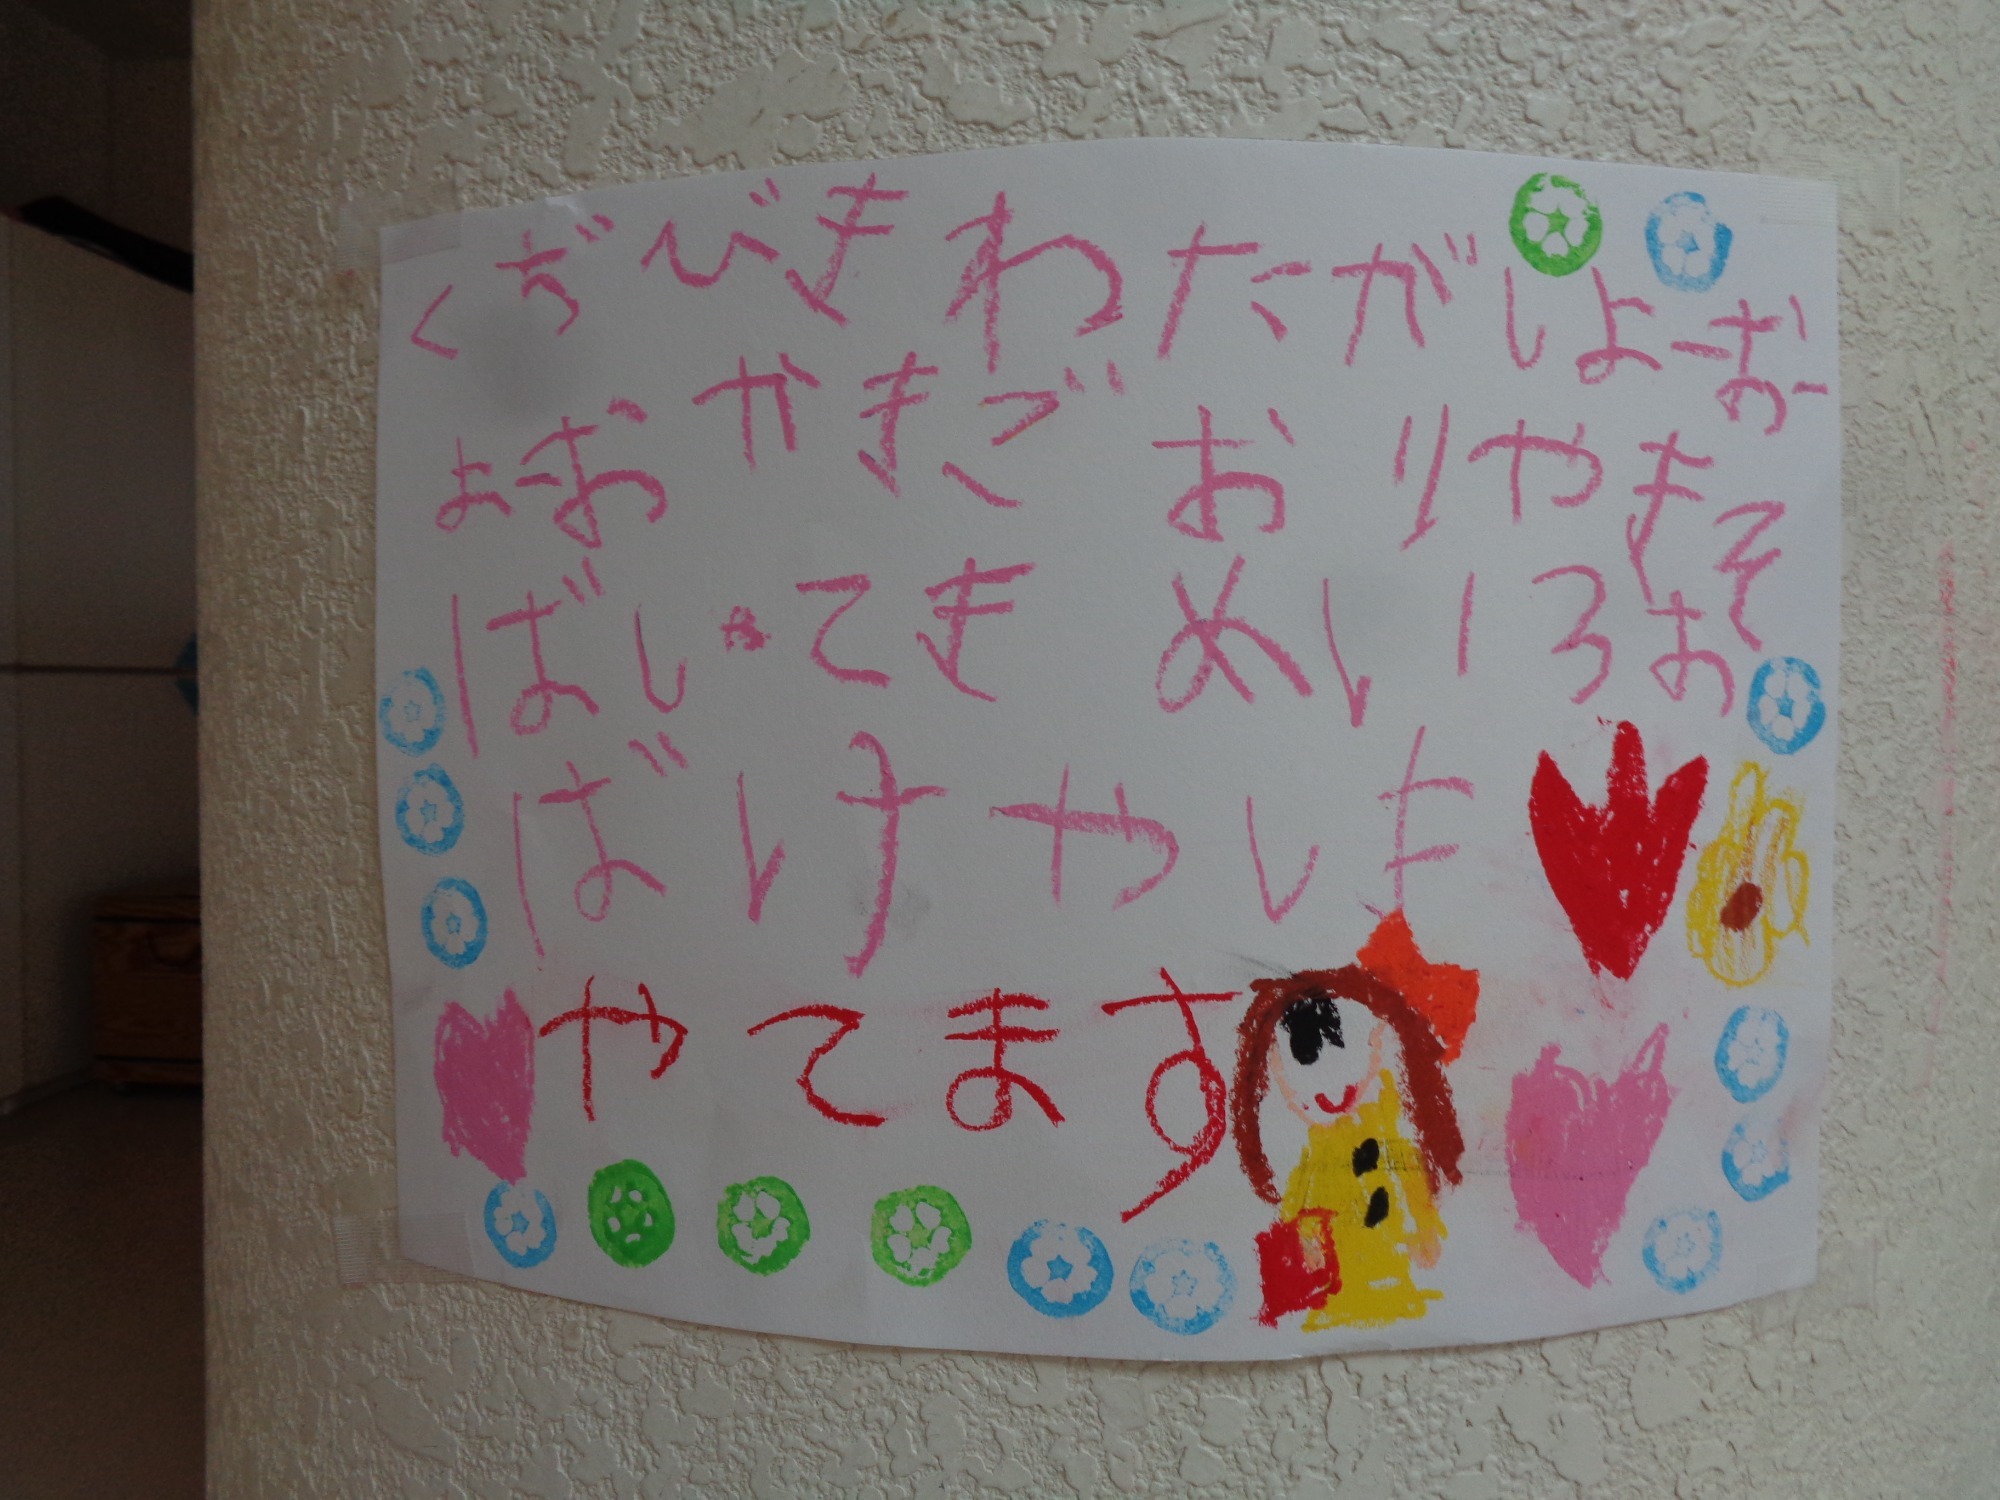 くぢびきわたがしよーお
よーおかきご おりやきそ
ばし・てき めいろお
ばけやしき
やてます